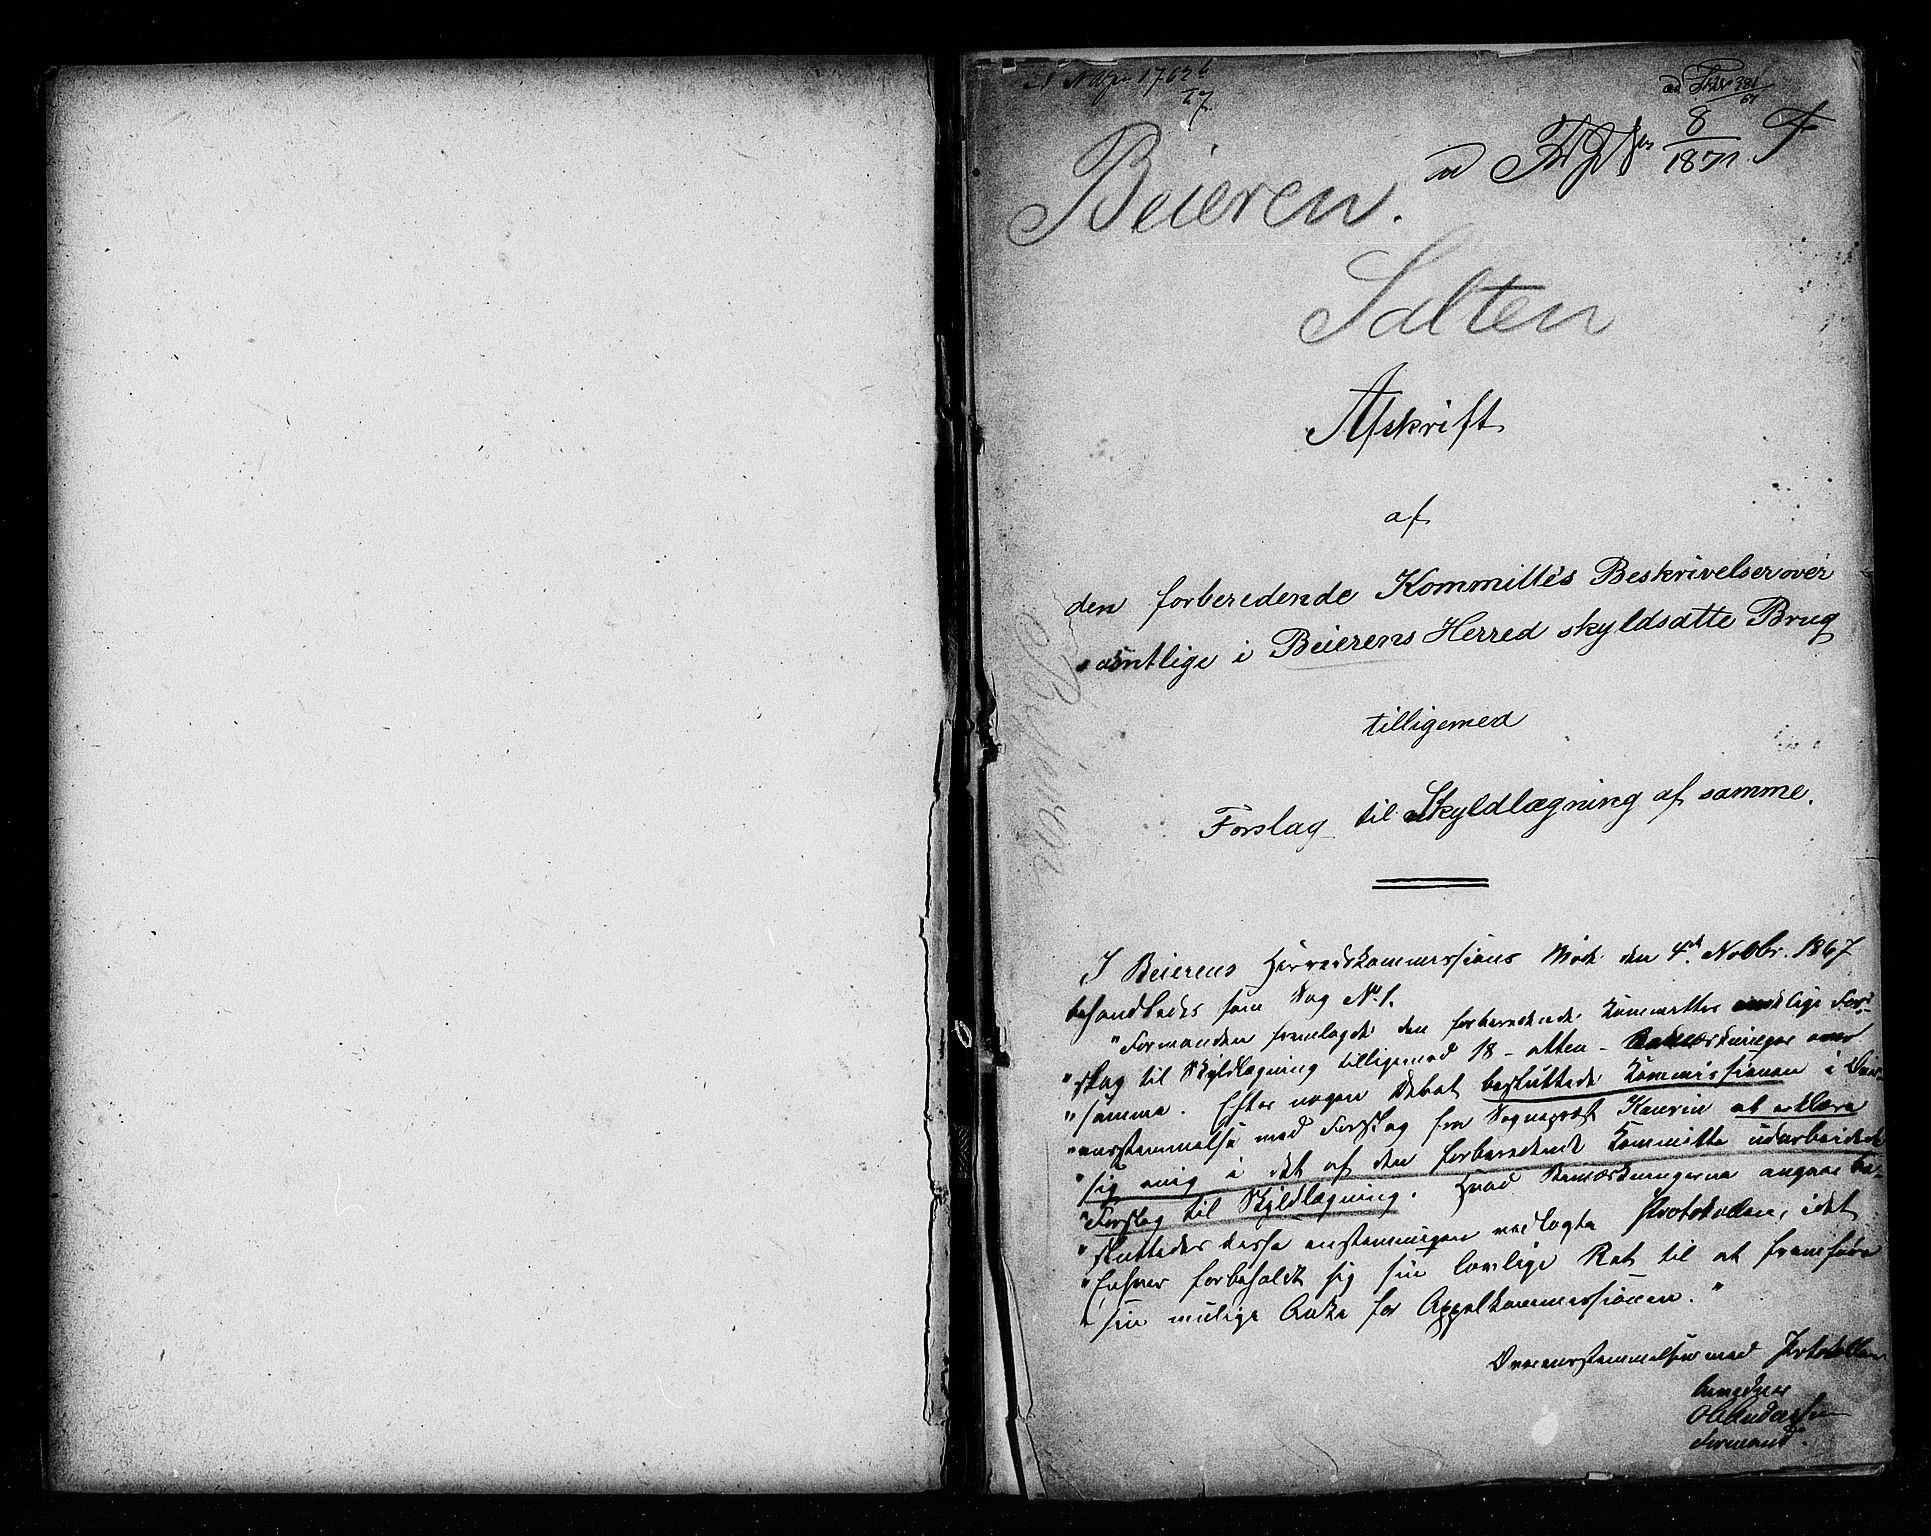 1762 b
67
ad 381
67
8
1871. F
Beieren.
Salten
Afskrift
af
den forberedende Kommittés Beskrivelser over
samtlige i Beierens Herred skyldsatte Brug
tilligemed
Forslag til Skyldlægning af samme.
I Beierens Herredskommissions Møde den 4de Novbr. 1867
behandledes som Sag No 1.
"Formanden fremlagde den forberedende Kommittes endelige For-
"slag til Skyldlægning tilligemed 18 - atten - Bemærkninger over
"samme. Efter nogen Debat besluttede Kommissionen i Over-
"ensstemmelse med Forslag fra Sognepræst Kaurin at erklære
"sig enig i det af den forberedende Kommitte udarbeidede
"Forslag til Skyldlægning. Hvad Bemærkningerne angaar be-
"sluttedes disse enstemmigen vedlagte Protokollen, idet
"Enhver forbeholdt sig sin lovlige Ret til at fremføre
"sin mulige Anke for Appelkommissionen."
Overensstemmelsen med Protokollen
bevidner
Ol Andersen
Formand.